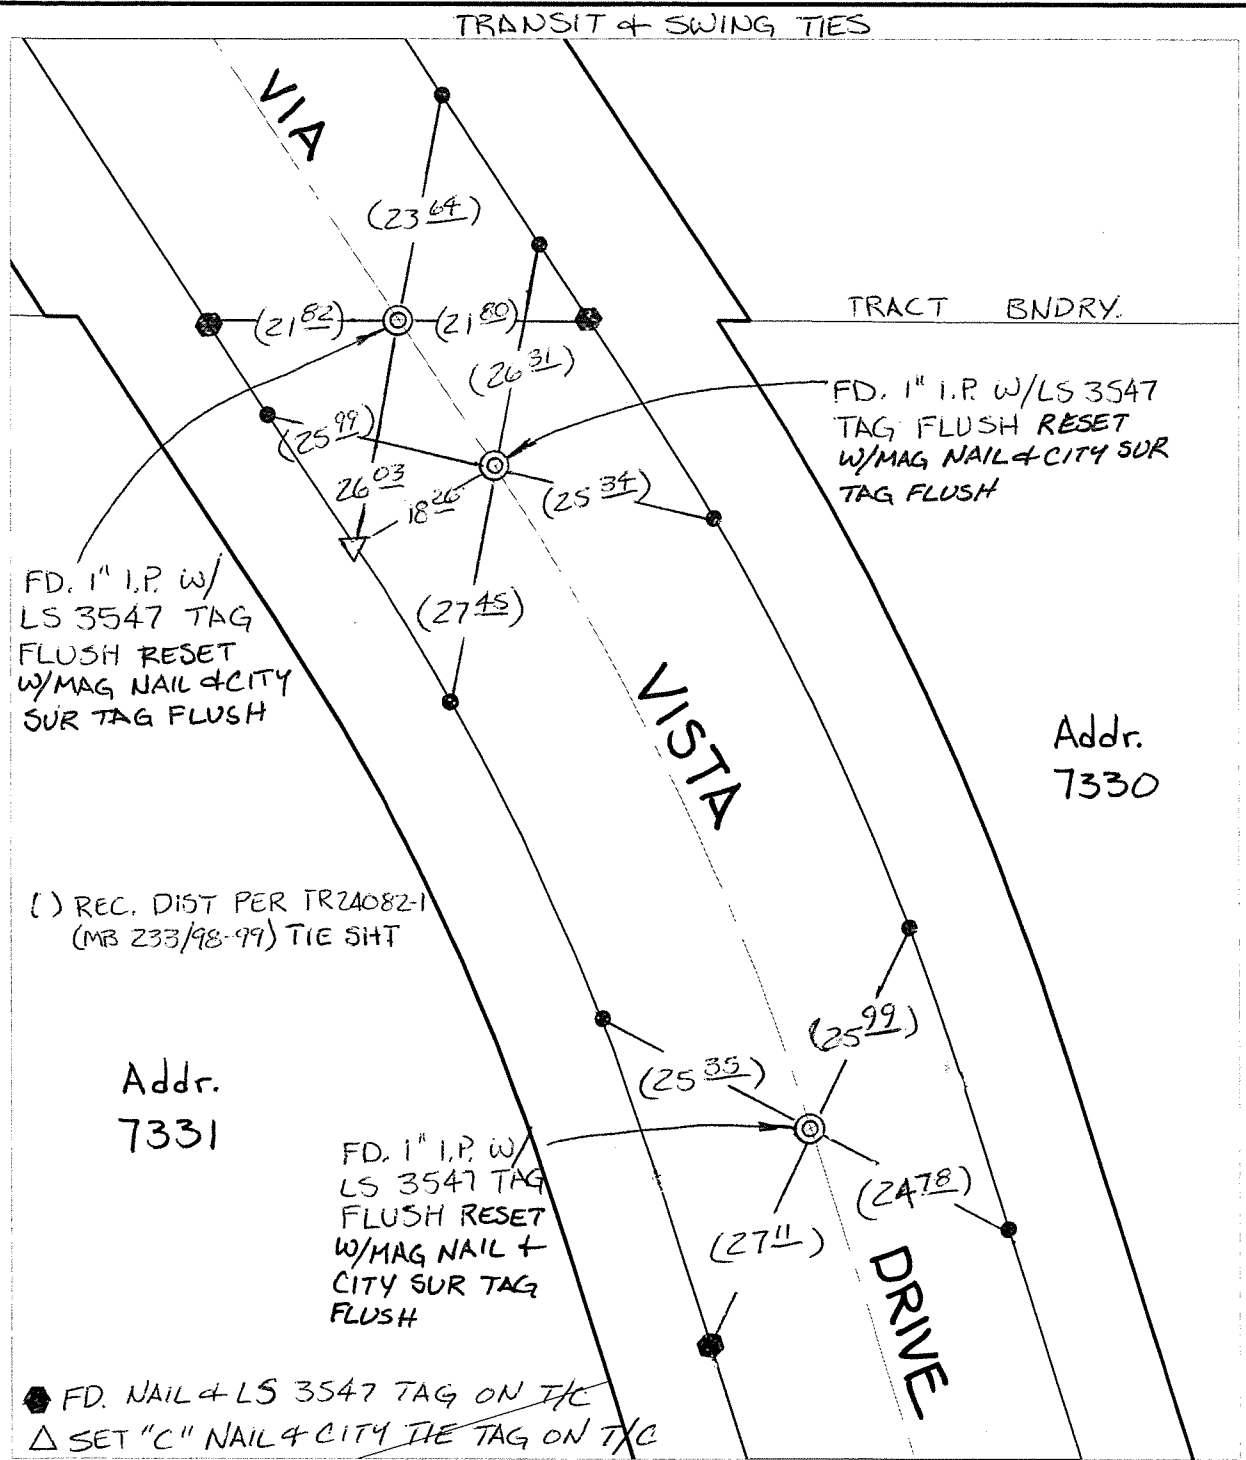 TRANSIT & SWING TIES
VIA
(23 64)
(21 82)
(21 80)
TRACT BNDRY.
(26 31)
FD. 1" I.P. W/LS 3547
TAG FLUSH RESET
W/MAG NAIL & CITY SUR
TAG FLUSH
(25 99)
26 03
18 26
(25 34)
FD. 1" I.P. W/
LS 3547 TAG
FLUSH RESET
W/MAG NAIL & CITY
SUR TAG FLUSH
(27 45)
VISTA
Addr.
7330
( ) REC. DIST PER TR24082-1
(MB 233/98-99) TIE SHT
(25 99)
(25 35)
Addr.
7331
FD. 1" I.P. W/
LS 3547 TAG
FLUSH RESET
W/MAG NAIL &
CITY SUR TAG
FLUSH
(24 78)
(27 11)
DRIVE
FD. NAIL & LS 3547 TAG ON T/C
SET "C" NAIL & CITY TIE TAG ON T/C